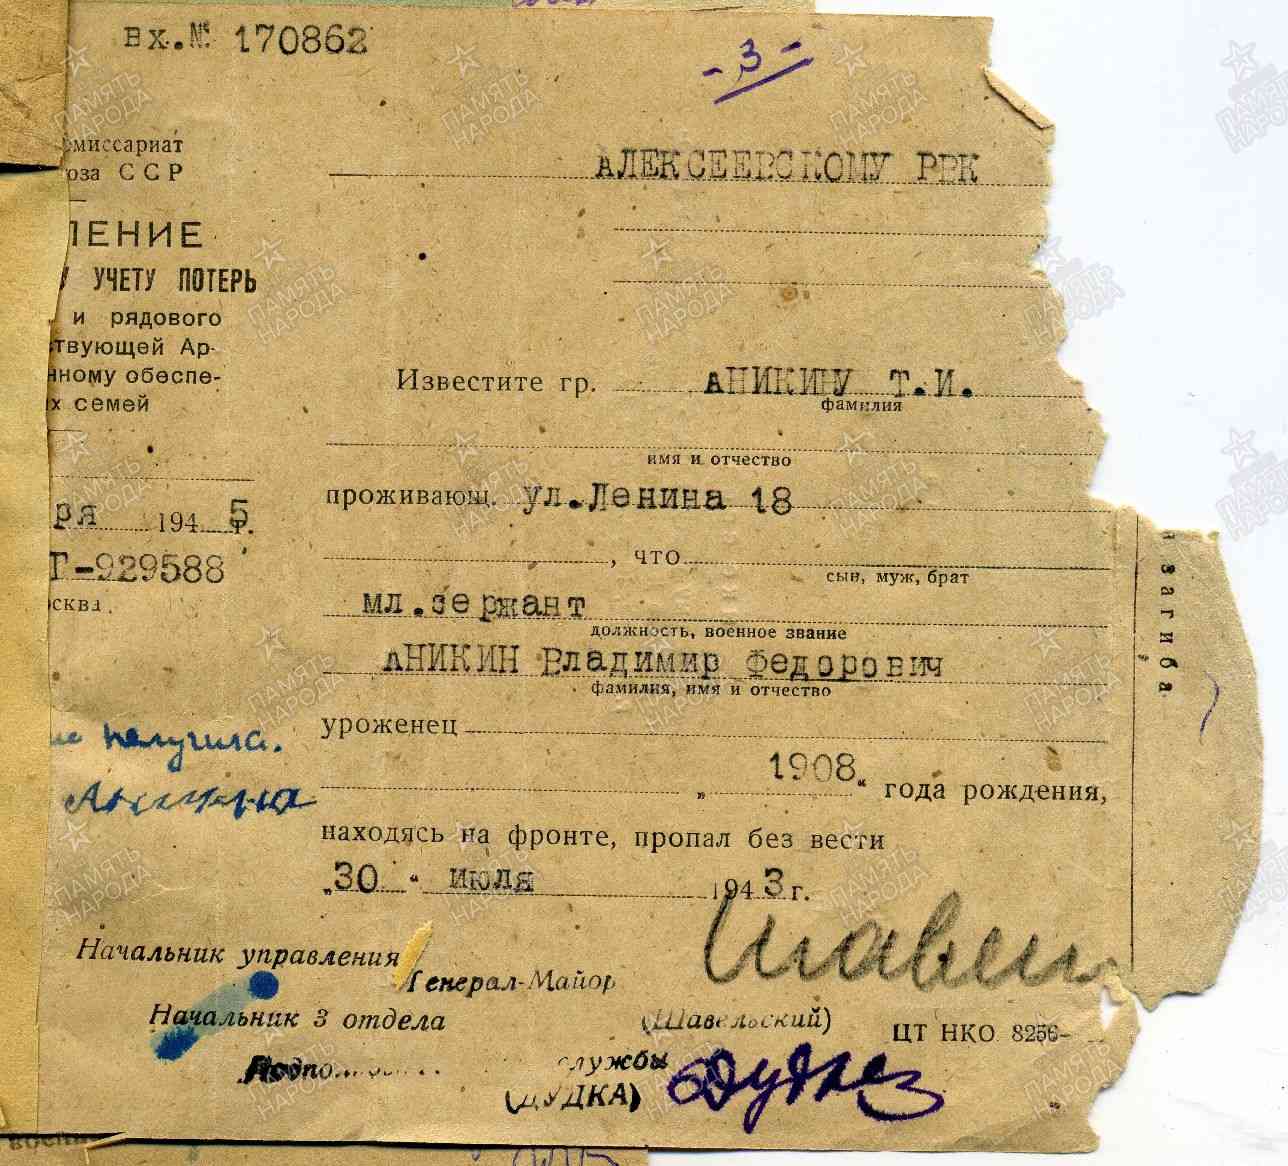 вх.№ 170862
- 3 -
омиссариат
оза ССР
АЛЕКСЕЕВСКОМУ РВК
ЛЕНИЕ
У УЧЕТУ ПОТЕРЬ
и рядового
твующей Ар-
нному обеспе-
х семей
Известите гр. АНИКИНУ Т.И.
фамилия
имя и отчество
проживающ. ул.Ленина 18
ря 194 5 г.
, что
сын, муж, брат
Г-929588
осква.
мл.сержант
должность, военное звание
АНИКИН Владимир Федорович
фамилия, имя и отчество
уроженец
получила.
Аникина
„ 1908 “ года рождения,
находясь на фронте, пропал без вести
„30 “ июля 194 3 г.
загиба
Начальник управления
Генерал-Майор
Шавель
Начальник 3 отдела
(Шавельский)
ЦТ НКО 8256-
службы
(ДУДКА)
ПАМЯТЬ НАРОДА